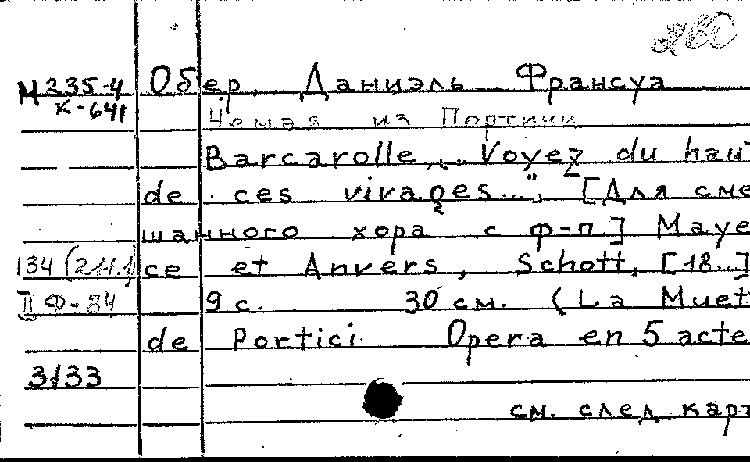 260
М235-4 Обер, Даниэль Франсуа
К-641
Немая из Портичи
Barcarolle „Voyez du hau
de ces virages...", [Для сме
шанного хора с ф-п.] Maye
134 (2111) ce et Anvers, Schott, [18..]
II Ф-84 9 с. 30 см. (La Muet
de Portici Opera en 5 acte
3133
см. след карт